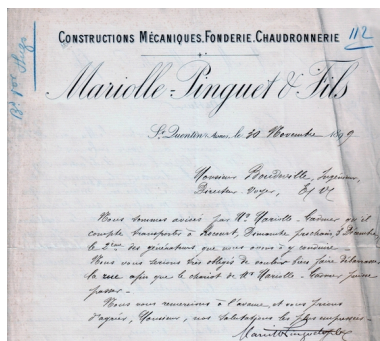 CONSTRUCTIONS MÉCANIQUES. FONDERIE. CHAUDRONNERIE
112
Bd. par
Mariolle-Pinguet & Fils
St Quentin, Aisne, le 30 Novembre 1899
Monsieur Ingénieur,
Directeur Voyer, E/V
Nous sommes avisés par Mr Mariolle - qu'il
compte transporter à Dimanche prochain, 3 Décembre
le 2ème des générateurs que nous avons à y conduire.
Nous vous serions très obligés de vouloir bien faire débarrasser
la rue afin que le chariot de Mr Mariolle - puisse
passer.
Nous vous remercions à l'avance et vous prions
d'agréer, Monsieur, nos salutations les plus empressées.
Mariolle Pinguet & fils